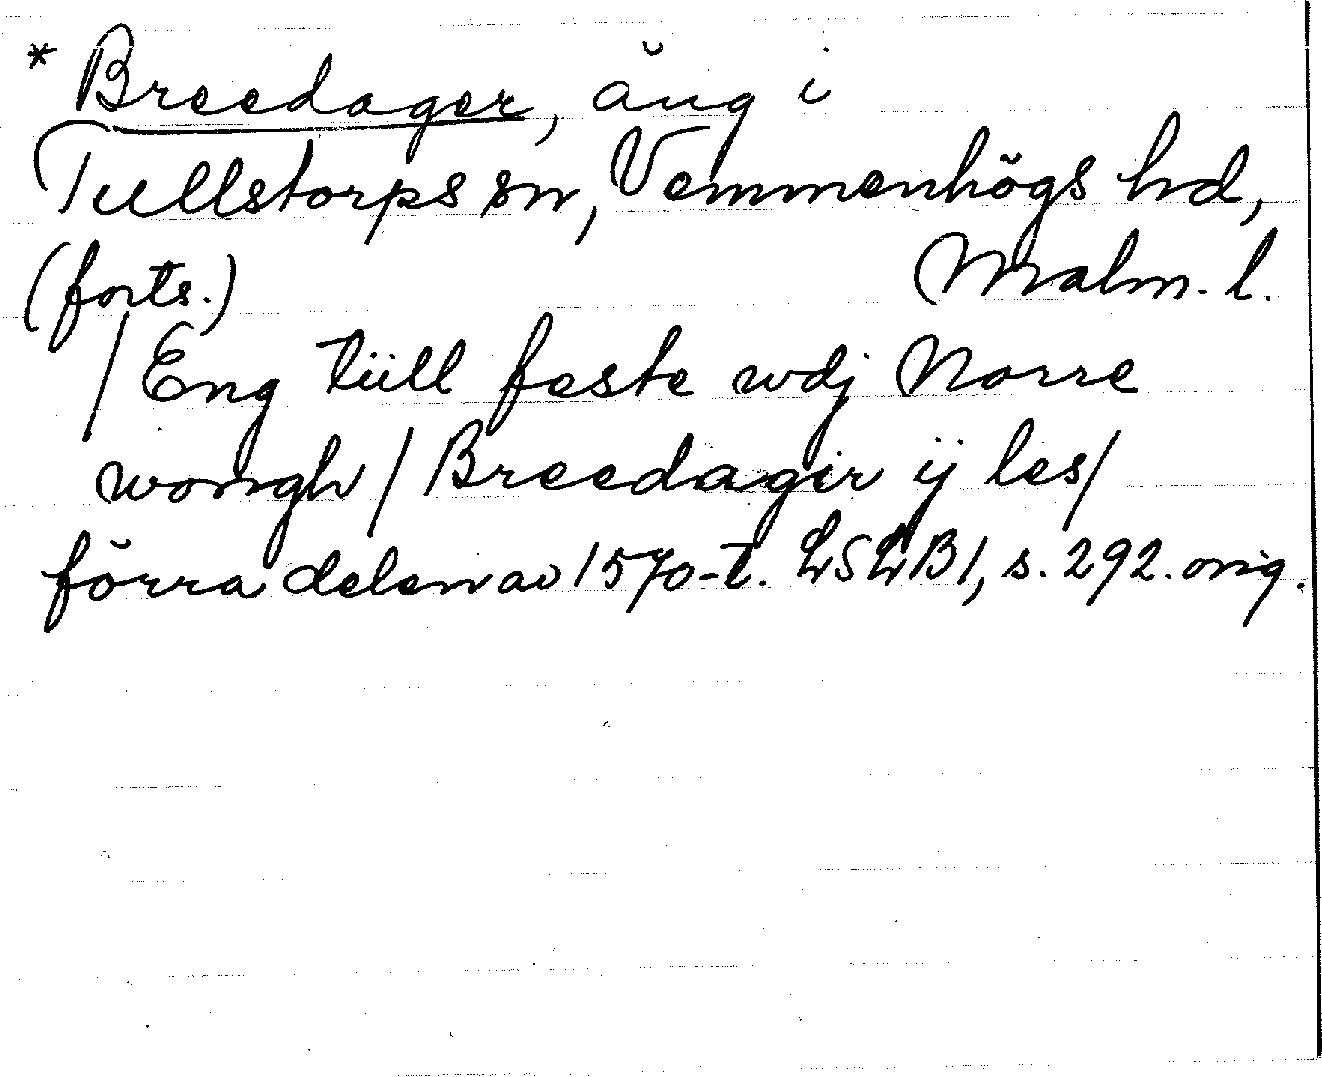 * Breedager, äng i
Tullstorps sn, Vemmenhögs hd,
(forts.) Malm. l.
/ Eng tiill feste wdj Norre
wongh / Breedagir ij les /
förra delen av 1570-t. LSLB 1, s. 292. orig.